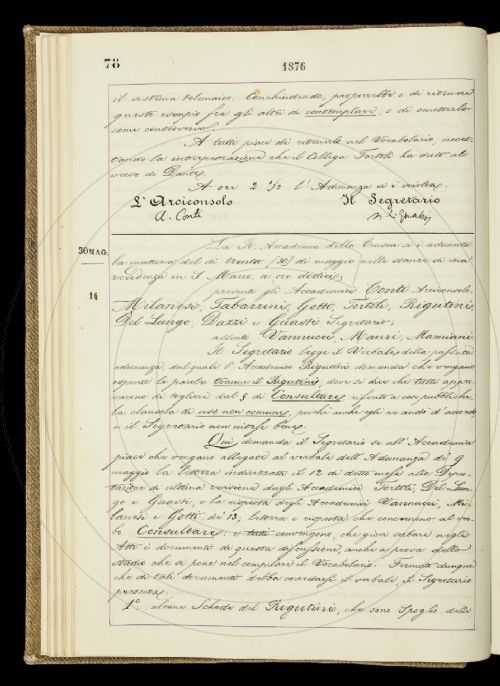 78
1876
il sistema tolemaico. Conchiudendo, proporrebbe o di ritenere
questo esempio fra gli altri di contemplare, o di ometterlo
come controverso.
A tutti piace di ritenerlo nel Vocabolario, accet-
tando la interpretazione che il Collega Tortoli ha data al
verso di Dante.
A ore 2 1/2 l'Adunanza si è sciolta.
L'Arciconsolo
Il Segretario
A. Conti
30 MAG.
La R. Accademia della Crusca si è adunata
la mattina del dì trenta (30) di maggio nelle stanze di sua
residenza in S. Marco a ore dodici;
14
presenti gli Accademici Conti Arciconsolo,
Milanesi, Tabarrini, Gotti, Tortoli, Rigutini,
Del Lungo, Dazzi e Guasti Segretario;
assenti Vannucci, Mauri, Mamiani.
Il Segretario legge il Verbale della passata
adunanza, dal quale l'Accademico Rigutini domanda che vengano
espunte le parole tranne il Rigutini, dove si dice che tutti appro-
varono di togliere dal § di Consultare riferito a cose pubbliche,
la clausola di uso non comune, poichè anche egli ne andò d'accordo
e il Segretario non intese bene.
Qui domanda il Segretario se all'Accademia
piace che vengano allegate al verbale dell'Adunanza di 9
maggio la lettera indirizzata il 12 di detto mese alla Depu-
tazione di ultima revisione dagli Accademici Tortoli, Del Lun-
go e Guasti e la risposta degli Accademici Vannucci, Mi-
lanesi e Gotti di 13, lettera e risposta che concernono al ver-
bo Consultare, e tutti convengono, che giovi serbare negli
Atti i documenti di questa discussione, anche a prova dello
studio che si pone nel compilare il Vocabolario. Fermato dunque
che di tali documenti debba corredarsi il verbale, il Segretario
presenta
1º alcune Schede del Rigutini, che sono Spoglio della